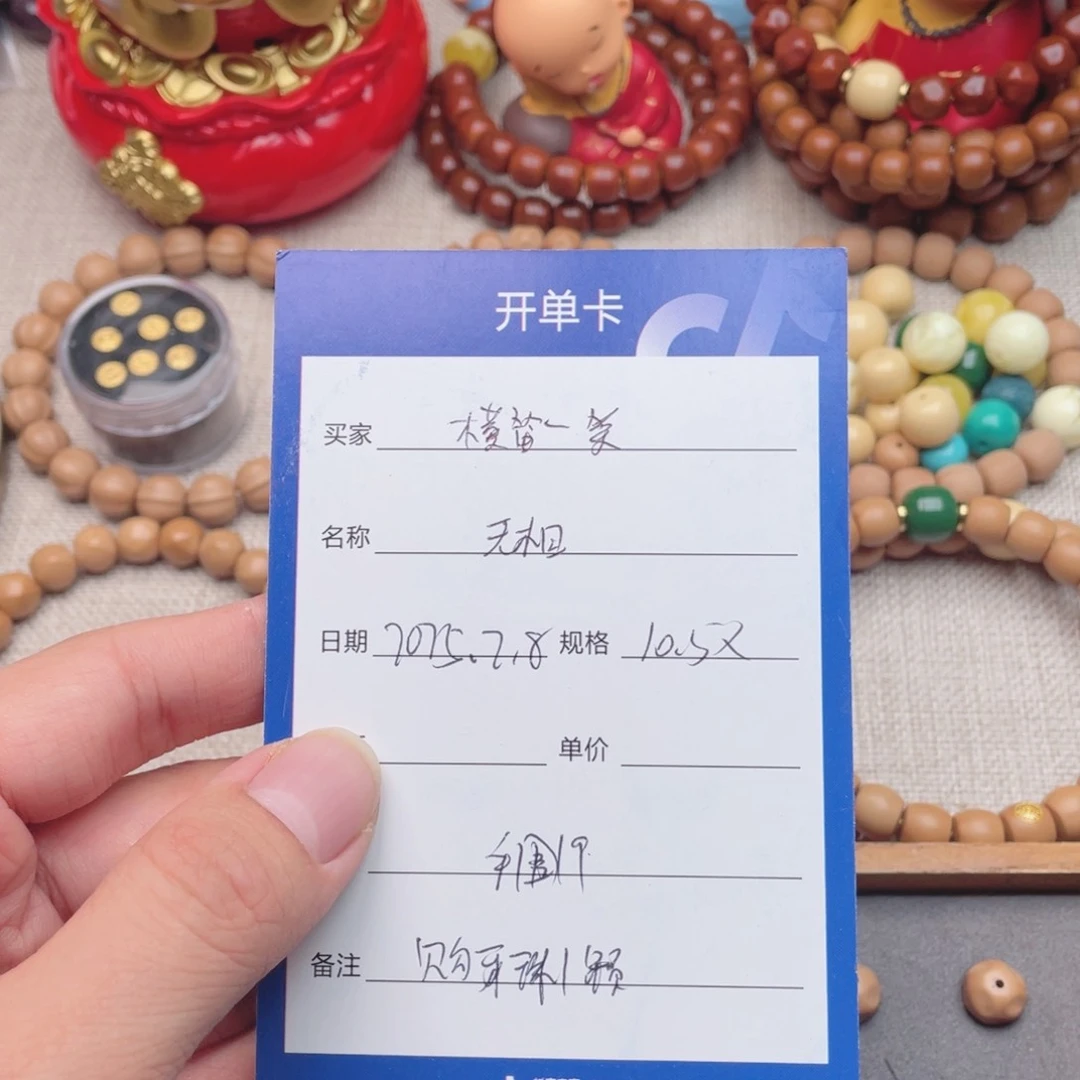 开单卡
买家 横笛一笑
名称 无相
日期 2025.7.8 规格 10.5又
单价
手围19
备注 购牙珠1颗